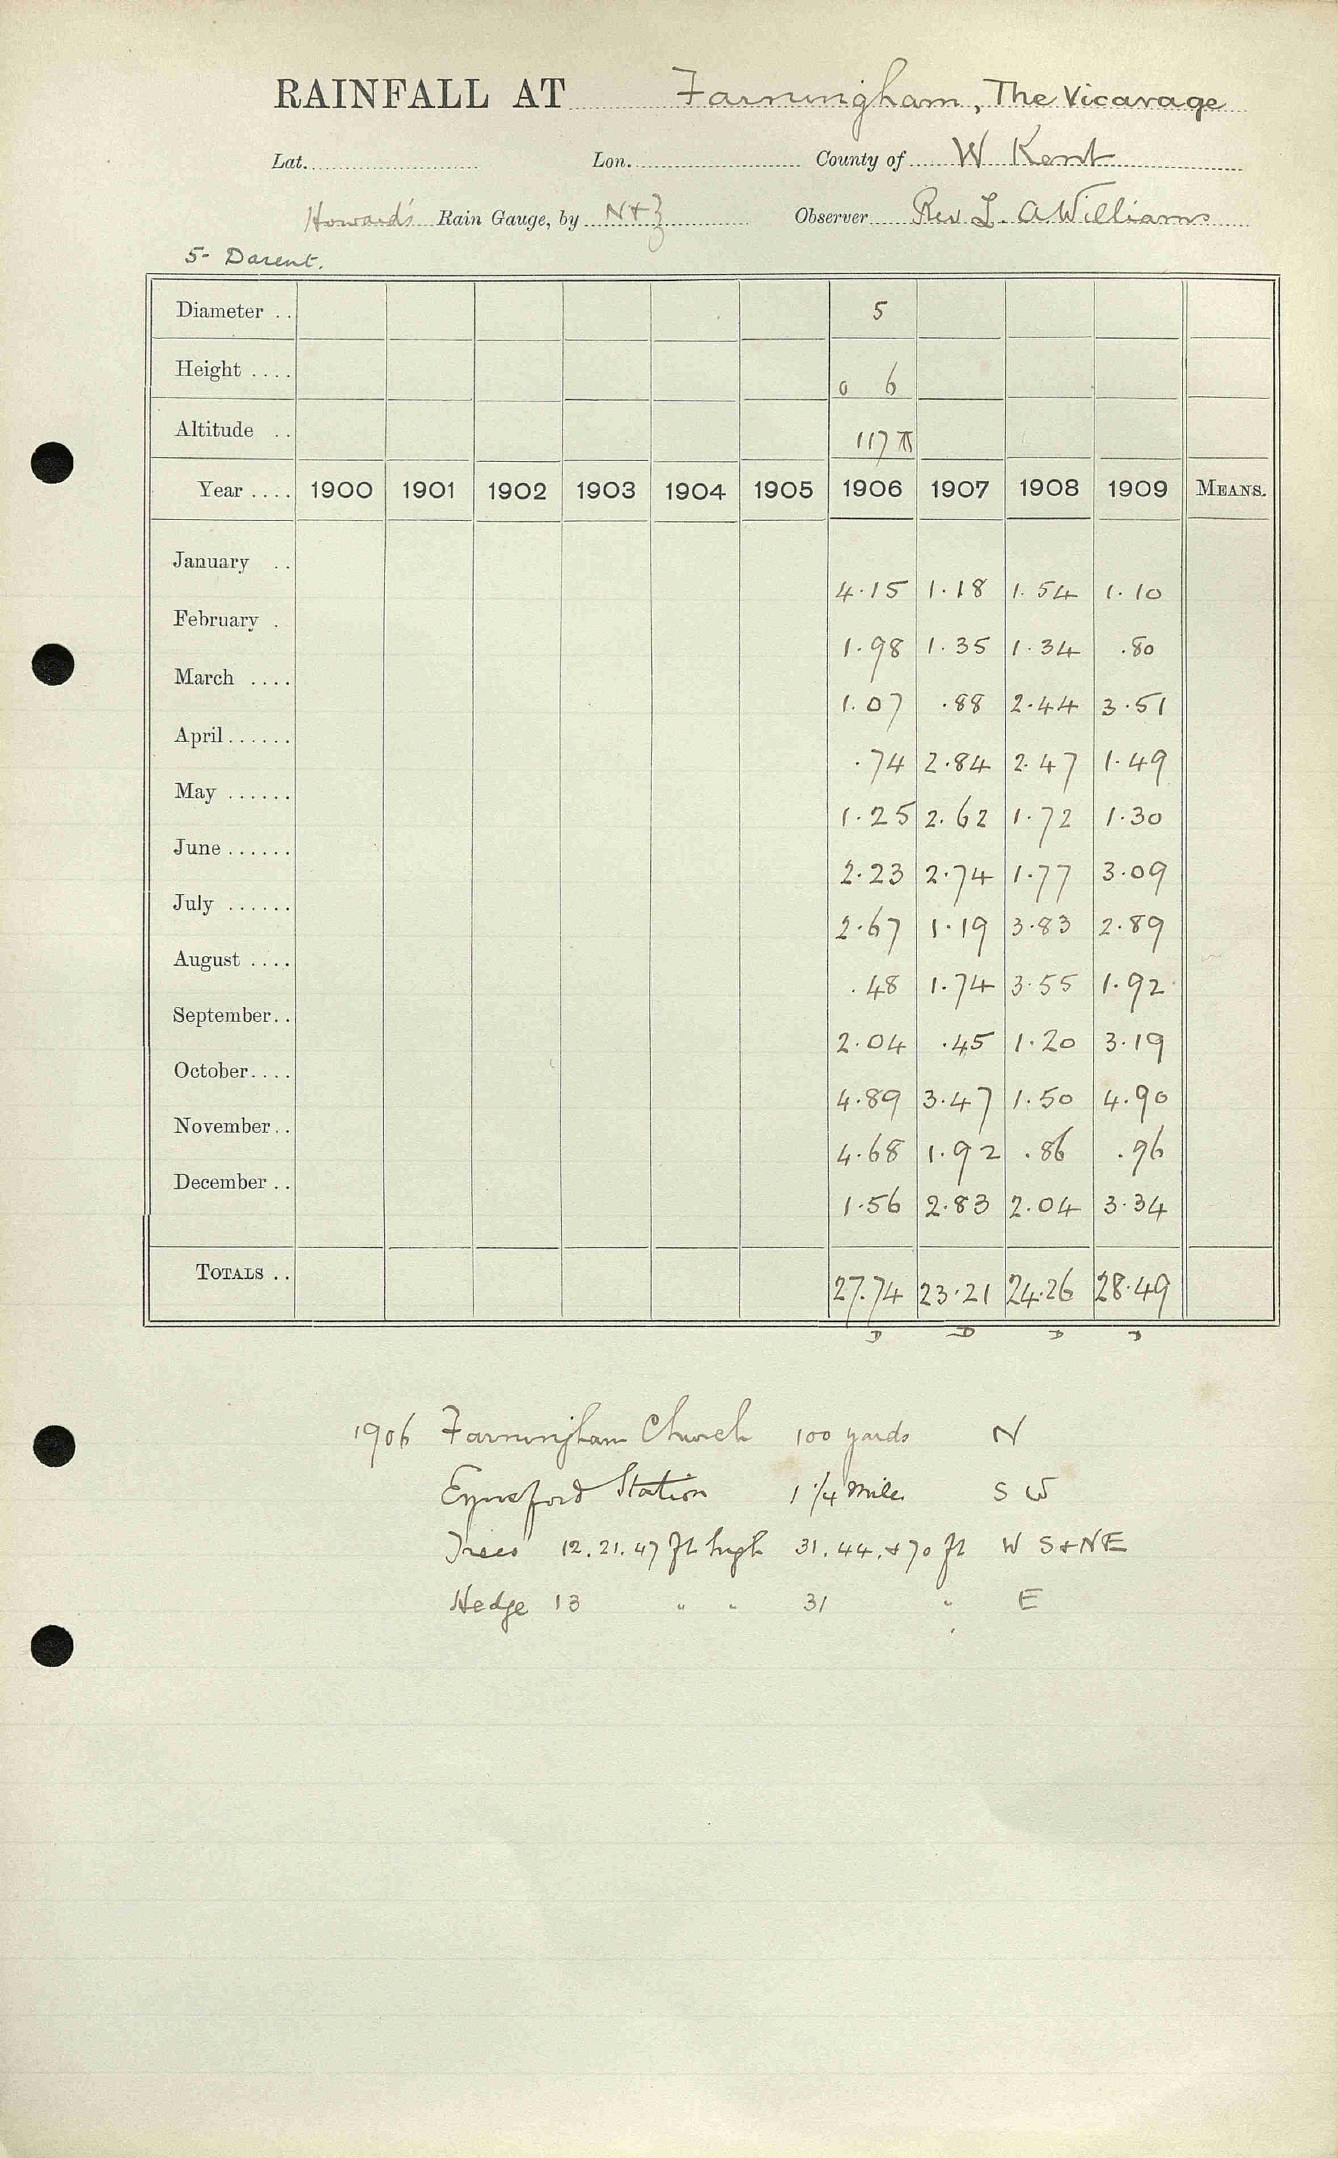 RAINFALL AT Farningham, The Vicarage
Lat. Lon. County of W Kent
Howard's Rain Gauge, by N+Z Observer Rev L. A Williams
5- Darent.
Diameter .. 5
Height .... 0 6
Altitude .. 117
Year .... 1900 1901 1902 1903 1904 1905 1906 1907 1908 1909 MEANS.
January .. 4.15 1.18 1.54 1.10
February . 1.98 1.35 1.34 .80
March .... 1.07 .88 2.44 3.51
April...... .74 2.84 2.47 1.49
May ...... 1.25 2.62 1.72 1.30
June ...... 2.23 2.74 1.77 3.09
July ...... 2.67 1.19 3.83 2.89
August .... .48 1.74 3.55 1.92
September.. 2.04 .45 1.20 3.19
October.... 4.89 3.47 1.50 4.90
November.. 4.68 1.92 .86 .96
December .. 1.56 2.83 2.04 3.34
TOTALS .. 27.74 23.21 24.26 28.49
D D D D
1906 Farningham Church 100 yards N
Eynsford Station 1 1/4 mile S W
Trees 12. 21. 47 ft high 31. 44. + 70 ft W S + NE
Hedge 13 " " 31 " E